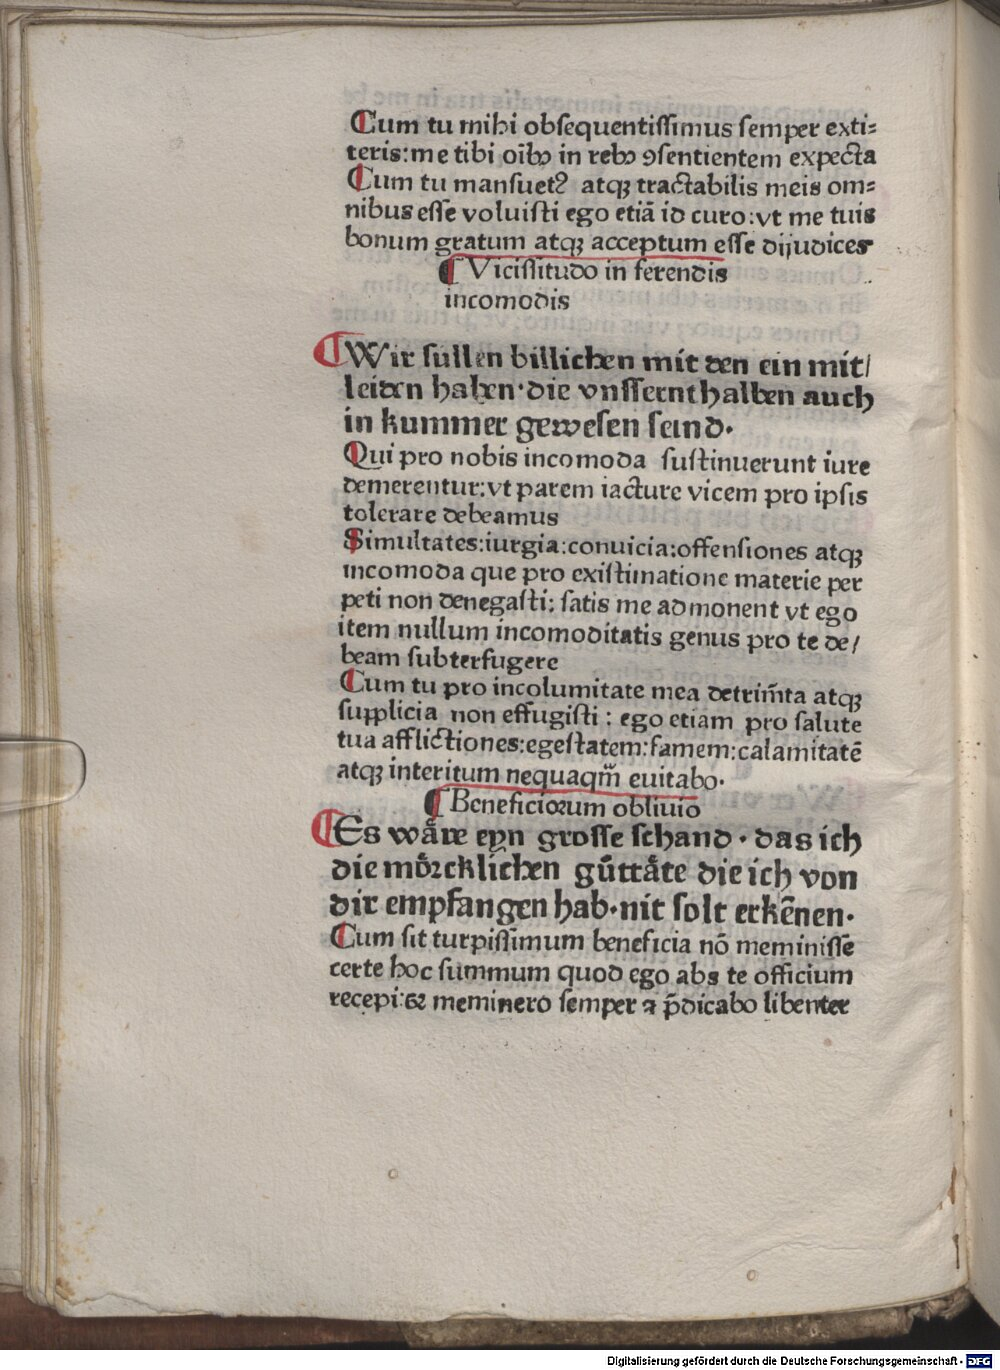 Cum tu mihi obsequentissimus semper exti⸗
teris: me tibi oĩbꝫ in rebꝫ ꝯsentientem expecta
Cum tu mansuetꝰ atqꝫ tractabilis meis om⸗
nibus esse voluisti ego etiã id curo: vt me tuis
bonum gratum atqꝫ acceptum esse dijudices
¶ Vicissitudo in ferendis
incomodis
¶ Wir sullen billichen mit den ein mit/
leiden haben· die vnssernthalben auch
in kummer gewesen seind·
Qui pro nobis incomoda sustinuerunt iure
demerentur: vt parem iacture vicem pro ipsis
tolerare debeamus
Simultates: iurgia: conuicia: offensiones atqꝫ
incomoda que pro existimatione materie per
peti non denegasti: satis me admonent vt ego
item nullum incomoditatis genus pro te de/
beam subterfugere
Cum tu pro incolumitate mea detrim̃ta atqꝫ
supplicia non effugisti: ego etiam pro salute
tua afflictiones: egestatem: famem: calamitatẽ
atqꝫ interitum nequaqm̃ euitabo·
¶ Beneficiorum obliuio
¶ Es wåre eyn grosse schand· das ich
die mo᷍rcklichen gůttåte die ich von
dir empfangen hab· nit solt erkẽnen·
Cum sit turpissimum beneficia nõ meminisse
certe hoc summum quod ego abs te officium
recepi: & meminero semper ⁊ p̃dicabo libenter
Digitalisierung gefördert durch die Deutsche Forschungsgemeinschaft · DFG